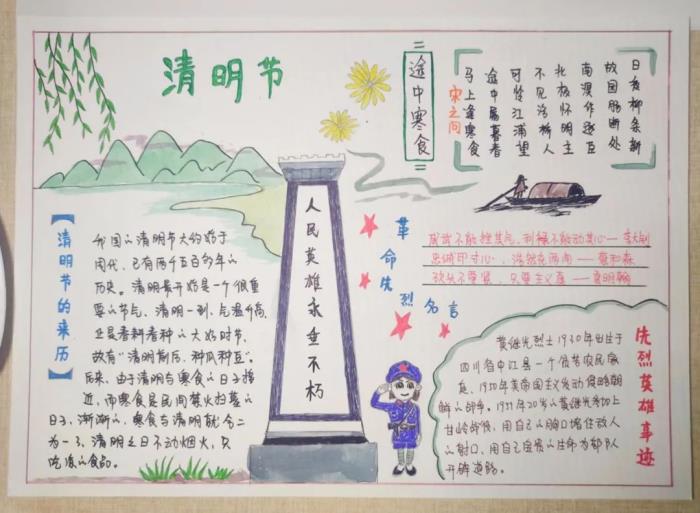 清明节
途中寒食
宋之问
马上逢寒食
途中属暮春
可怜江浦望
不见洛桥人
北极怀明主
南溟作逐臣
故园肠断处
日夜柳条新
【清明节的来历】
我国的清明节大约始于
周代，已有两千五百多年的
历史。清明最开始是一个很重
要的节气，清明一到，气温升高，
正是春耕春种的大好时节，
故有“清明前后，种瓜种豆”。
后来，由于清明与寒食的日子接
近，而寒食是民间禁火扫墓的
日子，渐渐的，寒食与清明就合二
为一了，清明之日不动烟火，只
吃凉的食品。
人民英雄永垂不朽
革命先烈名言
威武不能挫其气，利禄不能动其心——李大钊
忠诚印寸心，浩然充两间——蔡和森
砍头不要紧，只要主义真——夏明翰
先烈英雄事迹
黄继光烈士1930年出生于
四川省中江县一个贫苦农民家
庭，1950年美帝国主义发动侵略朝
鲜的战争。1951年20岁的黄继光参加上
甘岭战役，用自己的胸口堵住敌人
的射口，用自己宝贵的生命为部队
开辟道路。